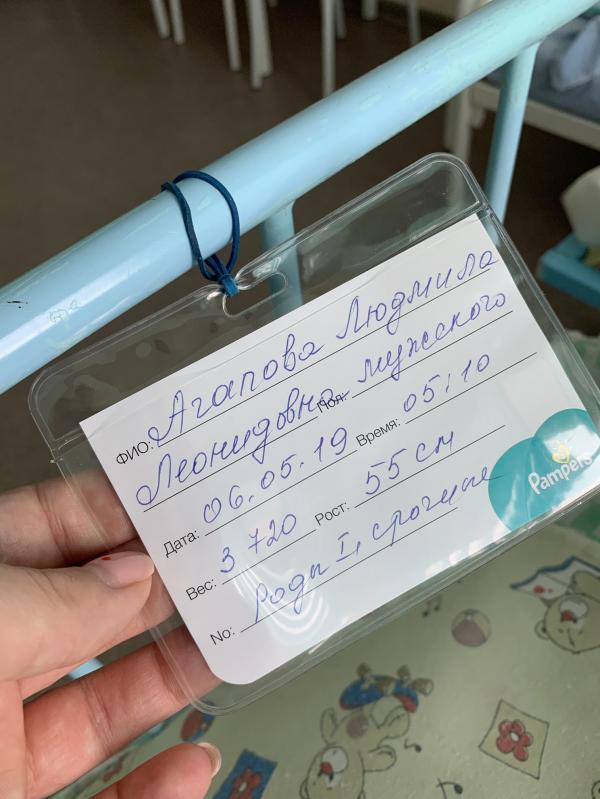 ФИО: Агапова Людмила
Леонидовна Пол: мужского
Дата: 06.05.19 Время: 05:10
Вес: 3 720 Рост: 55 см
No: Роды I, срочные
Pampers